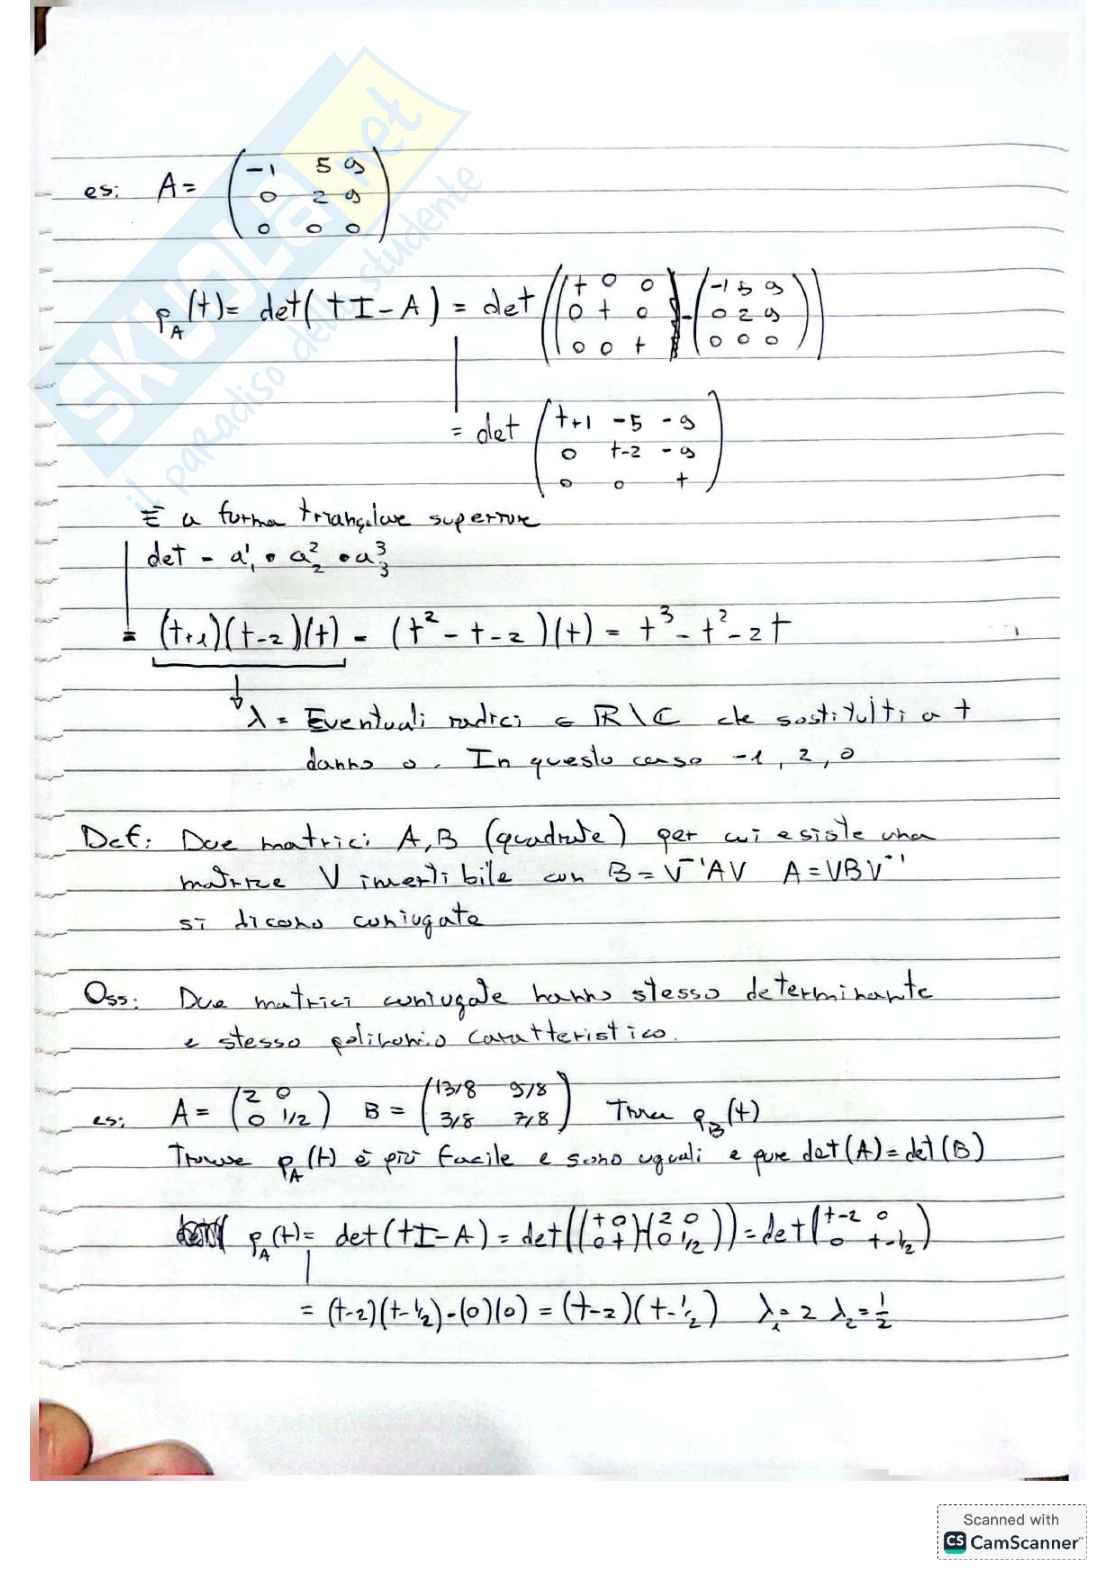 es: A = (-1 5 9
0 2 9
0 0 0)
p_A(t) = det(tI - A) = det((t 0 0 / 0 t 0 / 0 0 t) - (-1 5 9 / 0 2 9 / 0 0 0))
= det (t+1 -5 -9
0 t-2 -9
0 0 t)
È a forma triangolare superiore
det = a¹₁ • a²₂ • a³₃
= (t+1)(t-2)(t) = (t² - t - 2)(t) = t³ - t² - 2t
λ = Eventuali radici ∈ ℝ\ℂ che sostituiti a t
danno 0. In questo caso -1, 2, 0
Def: Due matrici A, B (quadrate) per cui esiste una
matrice V invertibile con B = V⁻¹AV A = VBV⁻¹
si dicono coniugate
Oss: Due matrici coniugate hanno stesso determinante
e stesso polinomio caratteristico.
es: A = (2 0 / 0 1/2) B = (13/8 9/8 / 3/8 7/8) Trova p_B(t)
Trovare p_A(t) è più facile e sono uguali e pure det(A) = det(B)
p_A(t) = det(tI - A) = det((t 0 / 0 t) - (2 0 / 0 1/2)) = det(t-2 0 / 0 t-1/2)
= (t-2)(t-1/2) - (0)(0) = (t-2)(t-1/2) λ₁ = 2 λ₂ = 1/2
SKUOLA.net
il paradiso dello studente
Scanned with
CS CamScanner